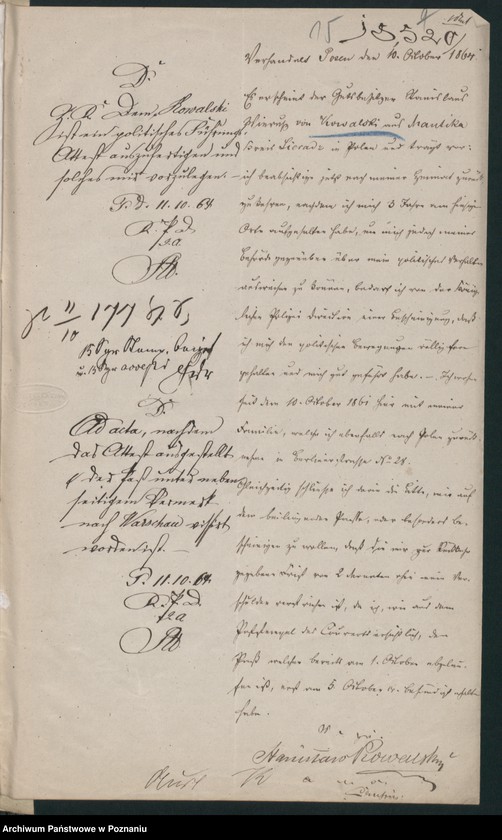 15 18520/
Verhandelt Posen den 10. Oktober 1864.
Es erscheint der Gutsbesitzer Stanislaus
von Kowalski aus
Kreis Sieradz in Polen und trägt vor:
ich beabsichtige jetzt nach meiner Heimat zurück
zu kehren, nachdem ich mich 3 Jahre am hiesigen
Orte aufgehalten habe, um mich jedoch meiner
Behörde gegenüber über mein politisches Verhalten
ausweisen zu können, bedarf ich von der König-
lichen Polizei Direktion einer Bescheinigung, daß
ich mich den politischen Bewegungen völlig fern
gehalten und mich gut geführt habe. — Ich wohne
seit dem 10. Oktober 1861 hier mit meiner
Familie, welche ich ebenfalls nach Polen zurück-
nehme in Berlinerstrasse No 28.
Gleichzeitig schließe ich daran die Bitte, mir auf
dem beiliegenden Passe, oder besonders be-
scheinigen zu wollen, daß die mir zur Rückkehr
gegebene Frist von 2 Monaten ohne mein Ver-
schulden verstrichen ist, da ich, wie aus dem
Poststempel des Couverts ersichtlich, den
Paß welcher bereits am 1. Oktober abgelau-
fen ist, erst am 5 Oktober cr. erhalten
habe.
v. g. u.
Stanisław Kowalski
a. u. s.
D.
Z. R. Dem Kowalski
ist ein politisches Führungs-
Attest auszufertigen und
solches mir vorzulegen. —
P. d. 11. 10. 64
K. P. D.
11/10 177
15 Sgr Stemp.
u. 15 Sgr
D.
Ad acta, nachdem
das Attest ausgestellt
& der Paß unter neben-
seitigem Vermerk
nach Warschau visirt
worden ist. —
P. 11. 10. 64
K. P. D.
Archiwum Państwowe w Poznaniu